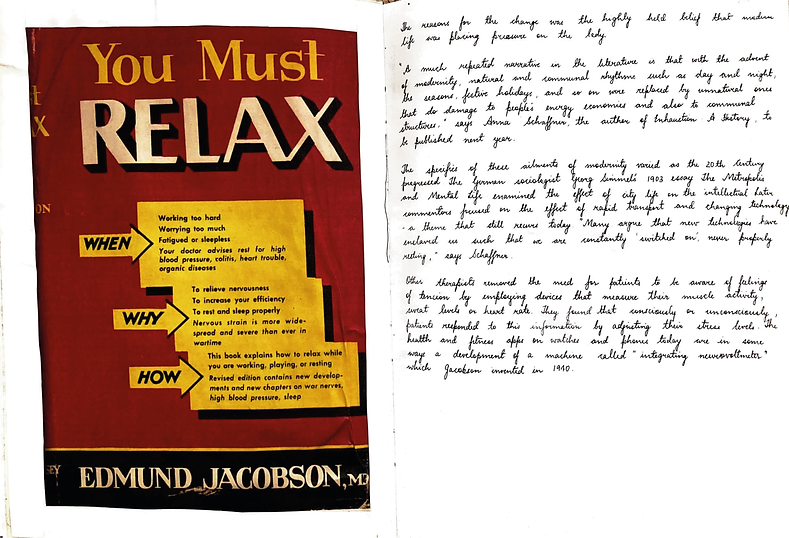 You Must
RELAX
WHEN
Working too hard
Worrying too much
Fatigued or sleepless
Your doctor advises rest for high
blood pressure, colitis, heart trouble,
organic diseases
WHY
To relieve nervousness
To increase your efficiency
To rest and sleep properly
Nervous strain is more wide-
spread and severe than ever in
wartime
HOW
This book explains how to relax while
you are working, playing, or resting
Revised edition contains new develop-
ments and new chapters on war nerves,
high blood pressure, sleep
EDMUND JACOBSON, M
The reasons for the change was the highly held belief that modern
life was placing pressure on the body.
"A much repeated narrative in the literature is that with the advent
of modernity, natural and communal rhythms such as day and night,
the seasons, festive holidays, and so on were replaced by unnatural ones
that do damage to people's energy economies and also to communal
structures." says Anna Schaffner, the author of Exhaustion: A History, to
be published next year.
The specifics of these ailments of modernity varied as the 20th Century
progressed. The German sociologist Georg Simmel's 1903 essay The Metropolis
and Mental Life examined the effect of city life on the intellectual. Later
commentors focused on the effect of rapid transport and changing technology
- a theme that still recurs today. "Many argue that new technologies have
enslaved us such that we are constantly 'switched on', never properly
resting," says Schaffner.
Other therapists removed the need for patients to be aware of feelings
of tension by employing devices that measure their muscle activity,
sweat levels or heart rate. They found that consciously or unconsciously,
patients responded to this information by adjusting their stress levels. The
health and fitness apps on watches and phones today are in some
ways a development of a machine called "integrating neurovoltmeter"
which Jacobson invented in 1940.